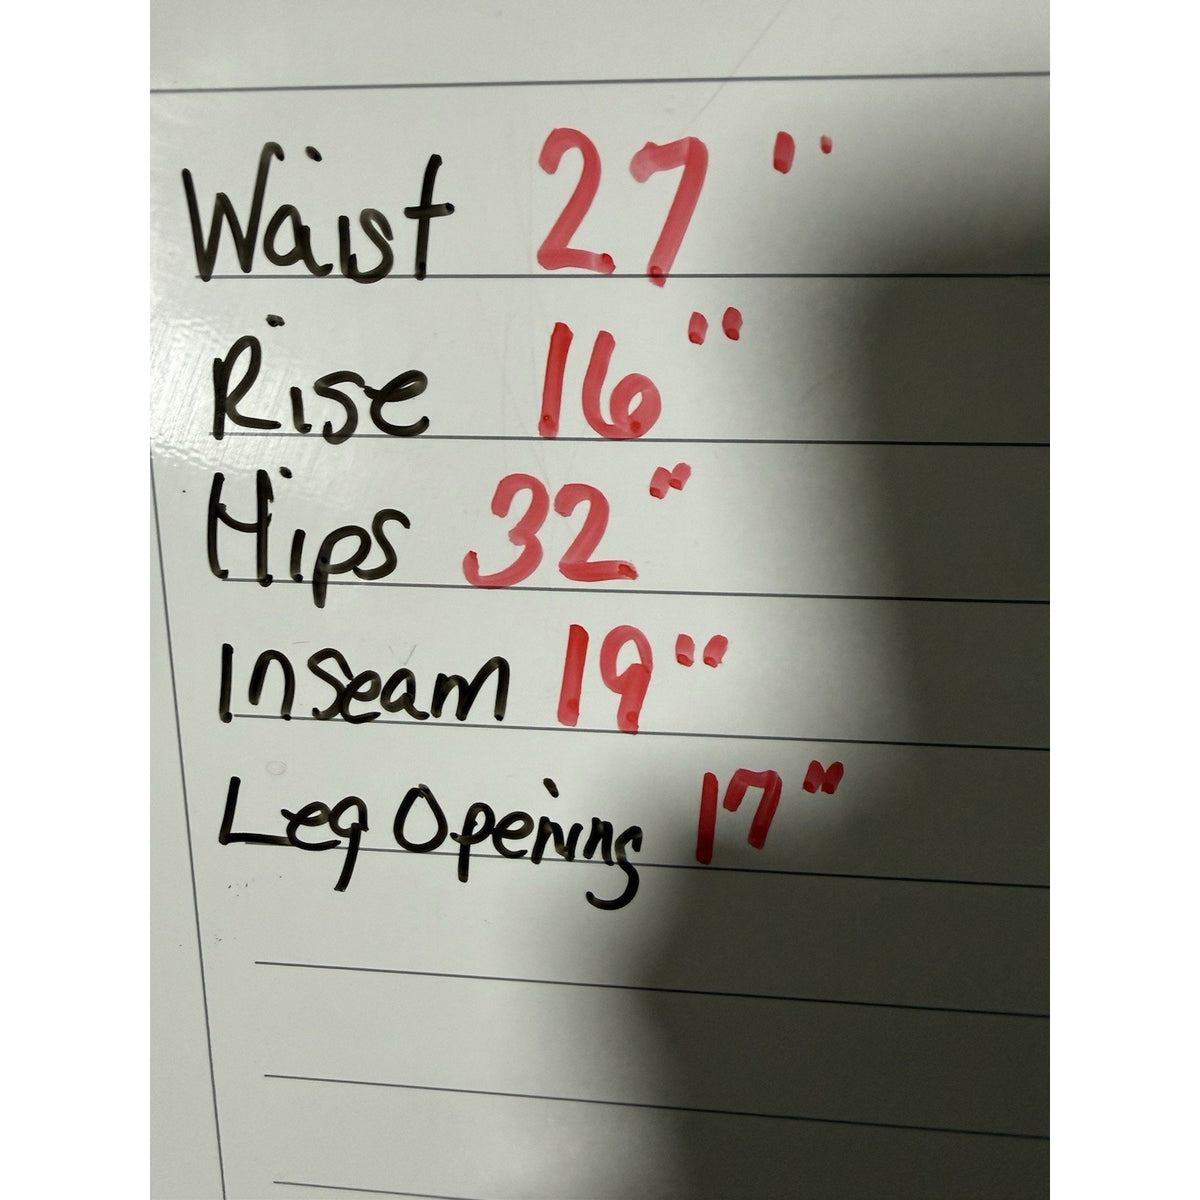 Waist 27"
Rise 16"
Hips 32"
Inseam 19"
Leg Opening 17"